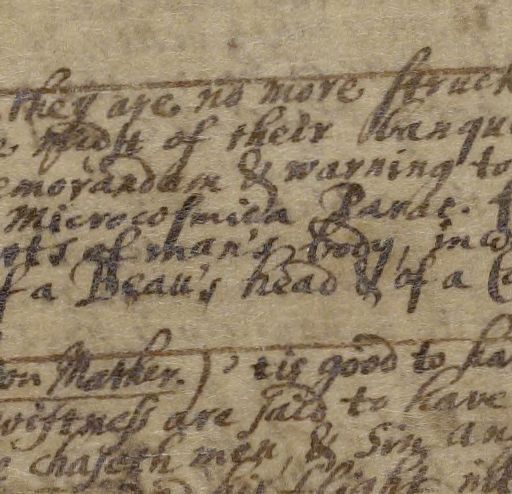 they are no more struck
midst of their banque
emorandum & warning to
Microcosmica Parae.
rts of man's body, in
f a Beau's head & of a
on Mather.) 'tis good to ha
wiftness are said to have
chaseth men, & Sin an